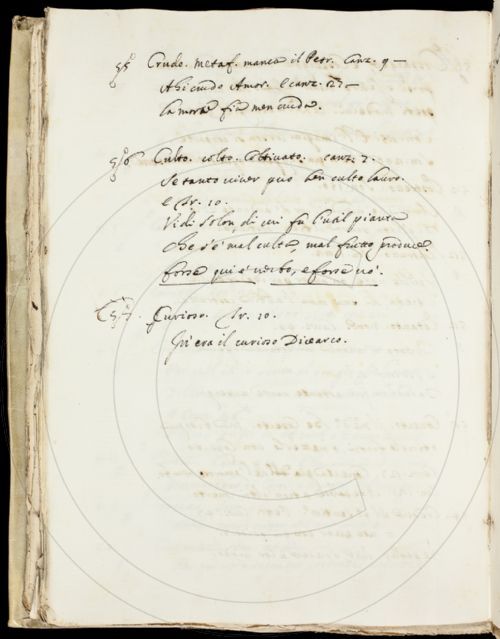 55 Crudo. metaf. manca il Petr. Canz. 9 —
Ahi crudo Amor. e canz. 27 —
La morte fia men cruda.
56 Culto. colto. Coltivato. canz. 7.
Se tanto viver può ben culto lauro.
e Tr. 10.
Vidi Solon di cui fu l'util pianta
che s'è mal culta, mal frutto produce,
forse qui è verbo, e forse nò.
57. Curioso. Tr. 10.
Iv'era il curioso Dicearco.